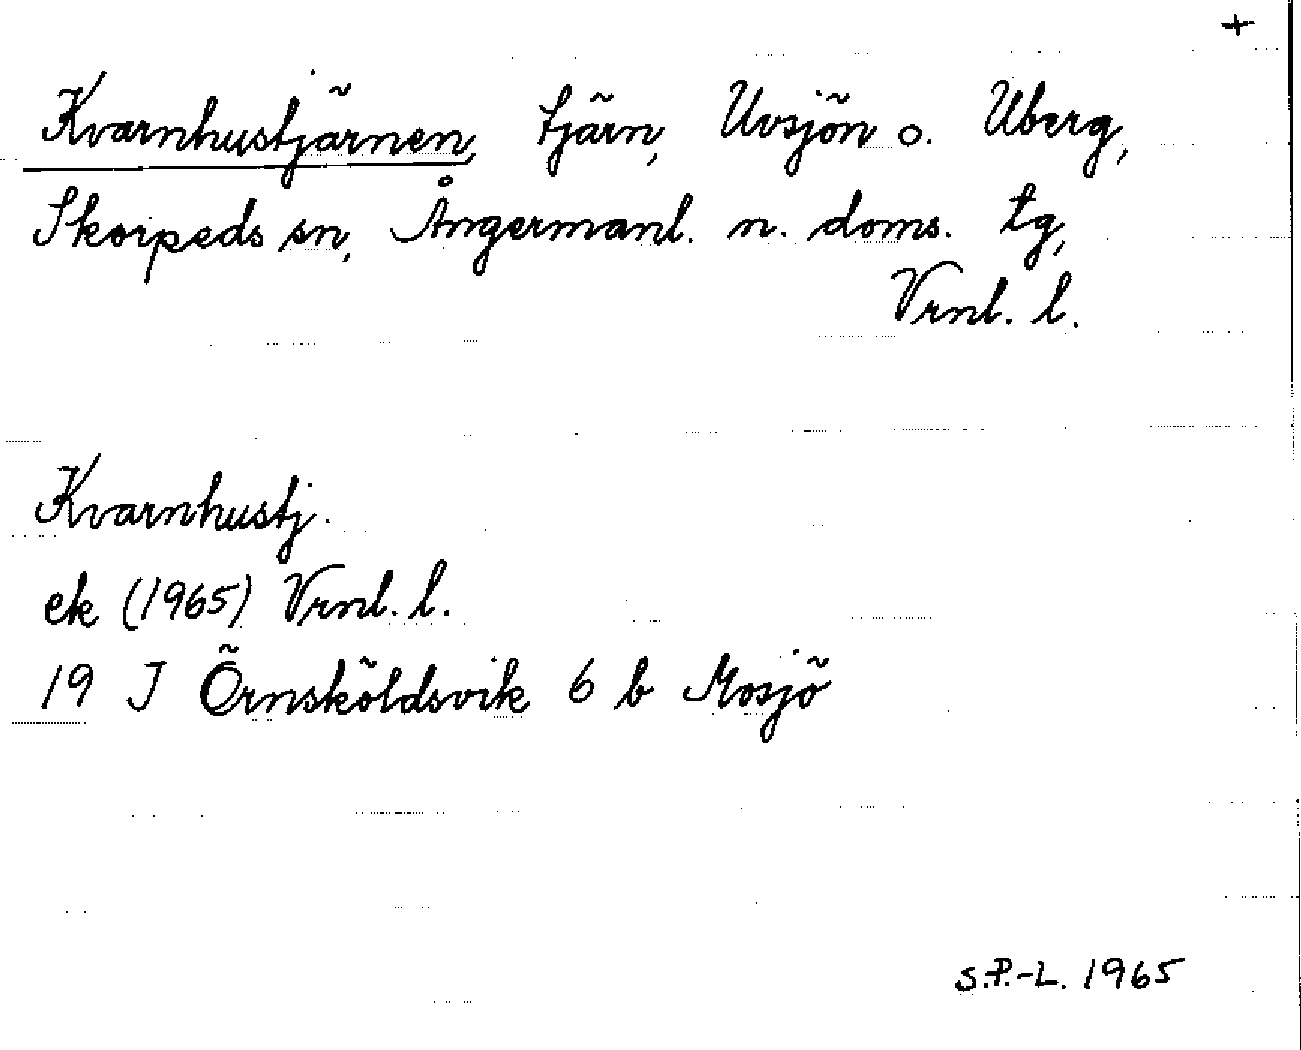 +
Kvarnhustjärnen, tjärn, Uvsjön o. Uberg,
Skorpeds sn, Ångermanl. n. doms. tg,
Vrnl. l.
Kvarnhustj.
ek (1965) Vrnl. l.
19 J Örnsköldsvik 6 b Mosjö
S.P.-L. 1965